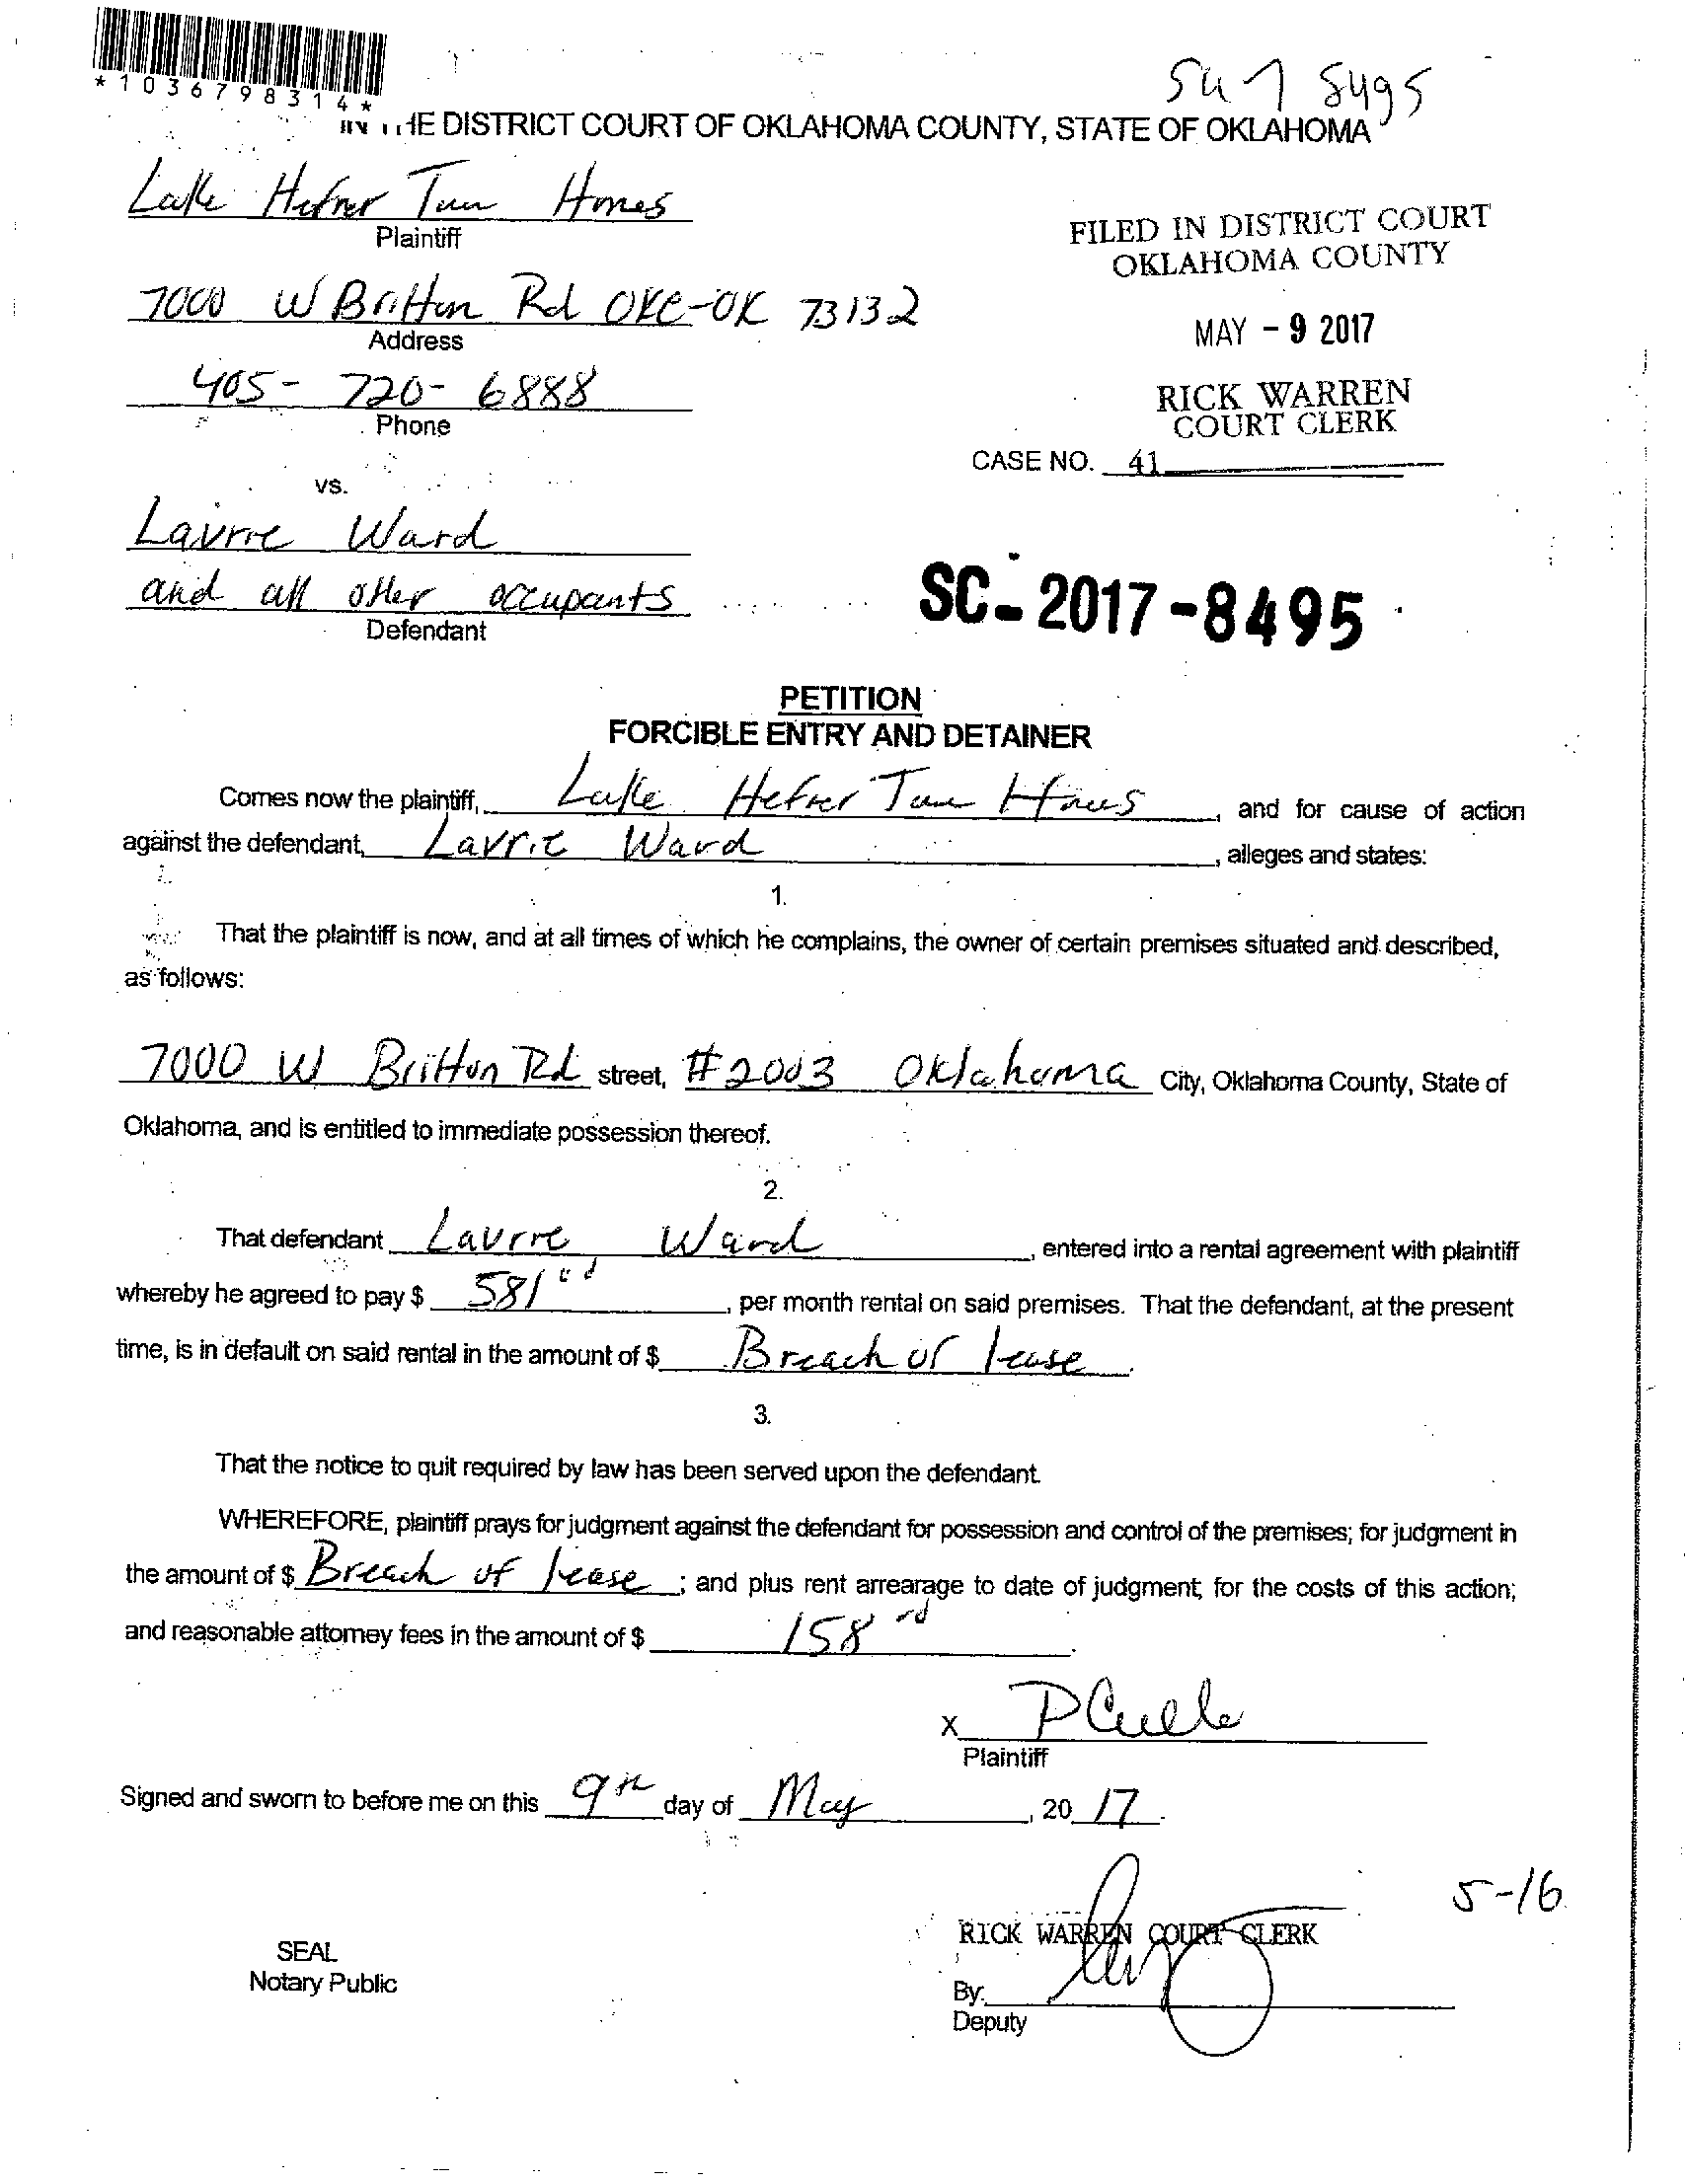 *1036798314*
8495
THE DISTRICT COURT OF OKLAHOMA COUNTY, STATE OF OKLAHOMA
Lake Hefner Twn Homes
Plaintiff
FILED IN DISTRICT COURT
OKLAHOMA COUNTY
7000 W Britton Rd OKC-OK 73132
Address
MAY - 9 2017
405-720-6888
Phone
RICK WARREN
COURT CLERK
CASE NO. 41
vs.
Laurie Ward
and all other occupants
Defendant
SC-2017-8495
PETITION
FORCIBLE ENTRY AND DETAINER
Comes now the plaintiff, Lake Hefner Twn Homes, and for cause of action
against the defendant, Laurie Ward, alleges and states:
1.
That the plaintiff is now, and at all times of which he complains, the owner of certain premises situated and described,
as follows:
7000 W Britton Rd street, #2003 Oklahoma City, Oklahoma County, State of
Oklahoma, and is entitled to immediate possession thereof.
2.
That defendant Laurie Ward, entered into a rental agreement with plaintiff
whereby he agreed to pay $ 581, per month rental on said premises. That the defendant, at the present
time, is in default on said rental in the amount of $ Breach of lease.
3.
That the notice to quit required by law has been served upon the defendant.
WHEREFORE, plaintiff prays for judgment against the defendant for possession and control of the premises; for judgment in
the amount of $ Breach of lease; and plus rent arrearage to date of judgment; for the costs of this action;
and reasonable attorney fees in the amount of $ 158.
X
Plaintiff
Signed and sworn to before me on this 9th day of May, 20 17.
5-16
RICK WARREN COURT CLERK
SEAL
Notary Public
By:
Deputy